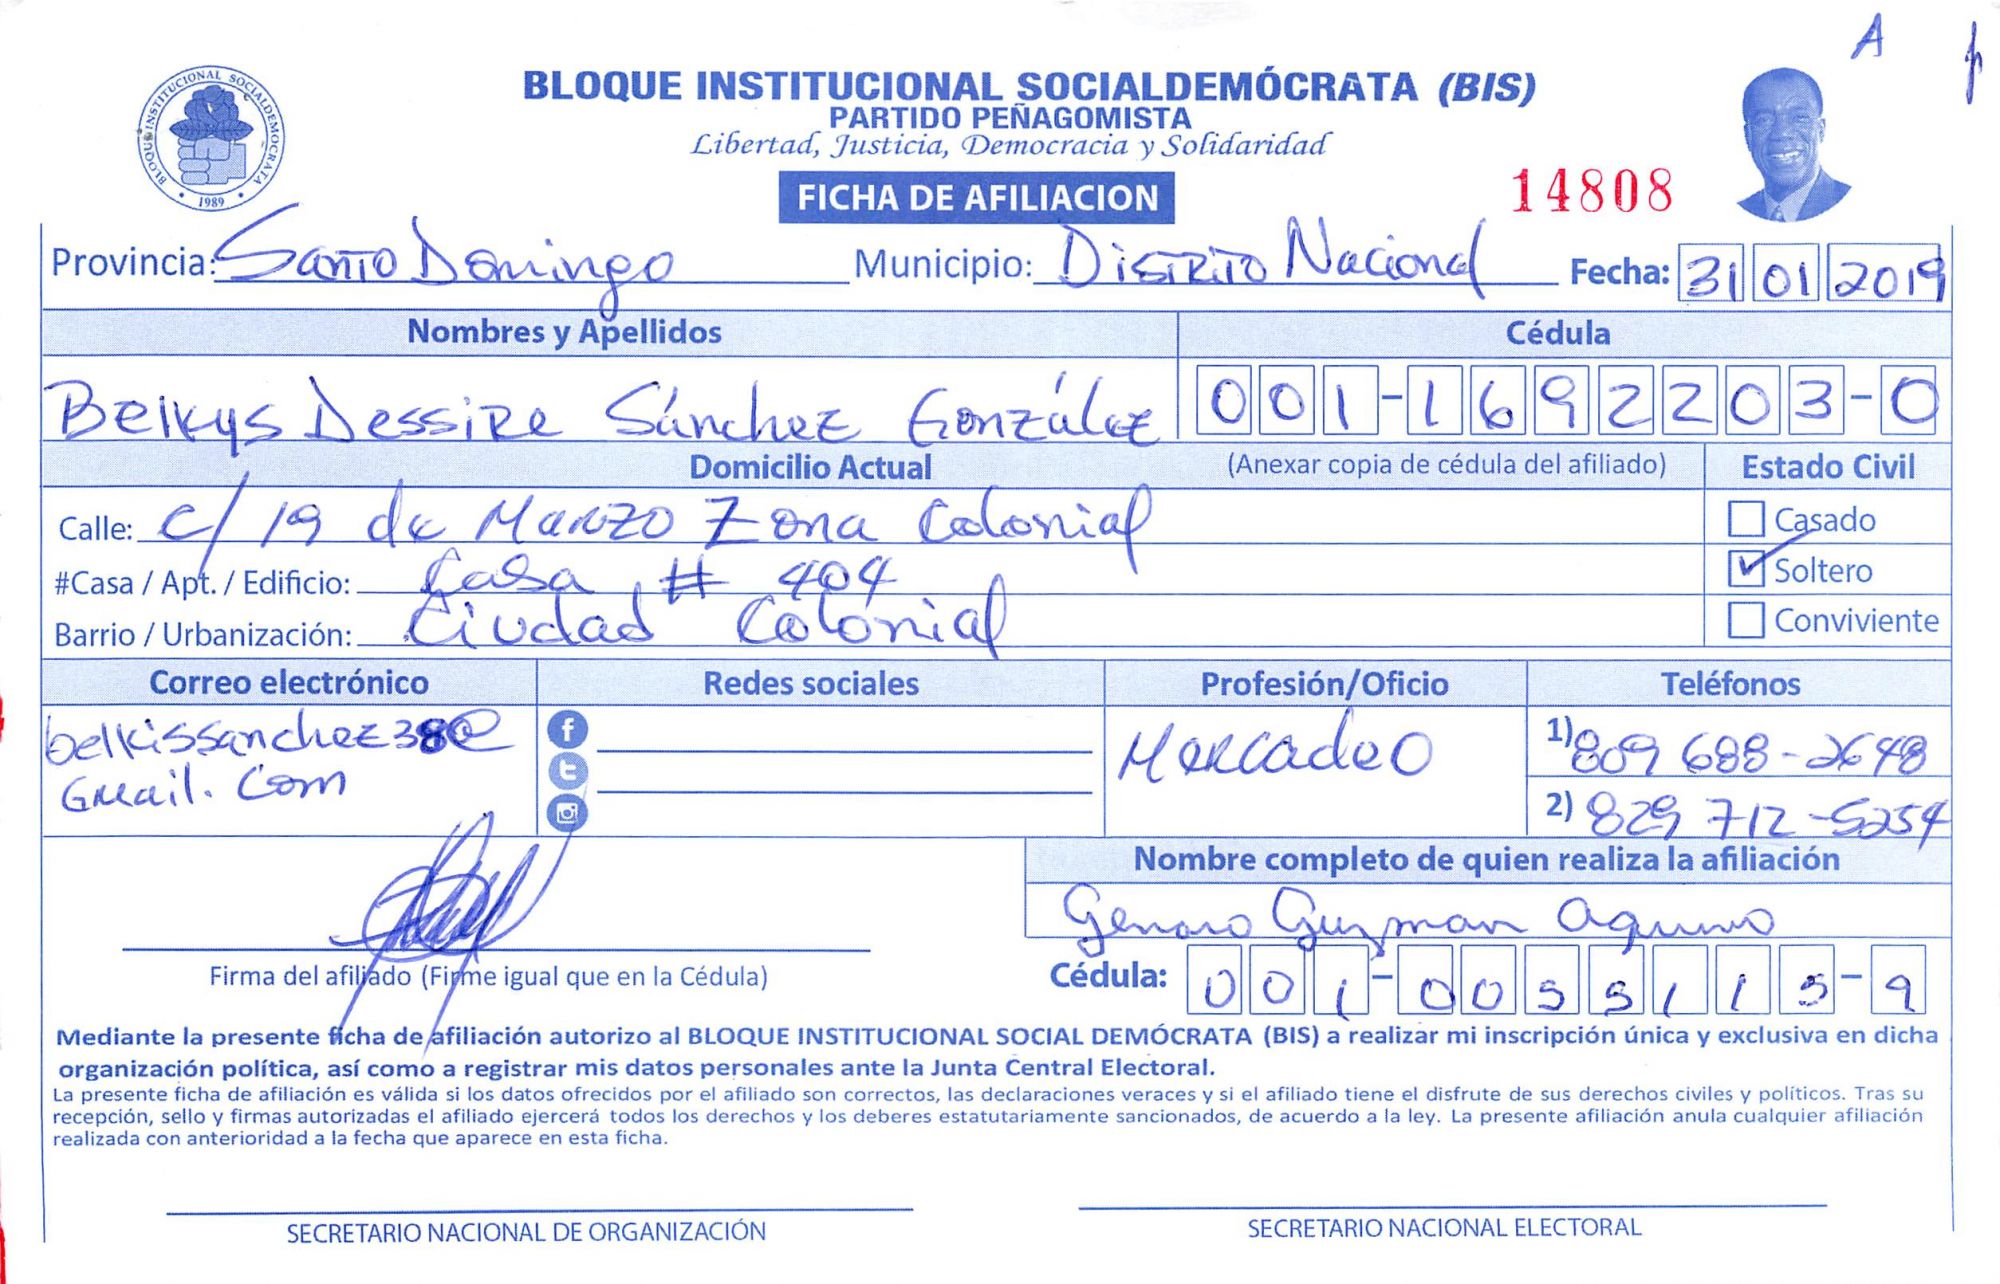 A
BLOQUE INSTITUCIONAL SOCIALDEMOCRATA
1989
BLOQUE INSTITUCIONAL SOCIALDEMÓCRATA (BIS)
PARTIDO PEÑAGOMISTA
Libertad, Justicia, Democracia y Solidaridad
FICHA DE AFILIACION
14808
Provincia: Santo Domingo Municipio: Distrito Nacional Fecha: 31 01 2019
Nombres y Apellidos Cédula
Belkys Dessire Sánchez González 001-1692203-0
Domicilio Actual (Anexar copia de cédula del afiliado) Estado Civil
Calle: c/ 19 de Marzo Zona Colonial Casado
#Casa / Apt. / Edificio: Casa # 404 Soltero
Barrio / Urbanización: Ciudad Colonial Conviviente
Correo electrónico Redes sociales Profesión/Oficio Teléfonos
belkissanchez38@ Mercadeo 1) 809 688-2648
Gmail.com 2) 829 712-5254
Nombre completo de quien realiza la afiliación
Genaro Guzman Aquino
Firma del afiliado (Firme igual que en la Cédula) Cédula: 001-0055115-9
Mediante la presente ficha de afiliación autorizo al BLOQUE INSTITUCIONAL SOCIAL DEMÓCRATA (BIS) a realizar mi inscripción única y exclusiva en dicha
organización política, así como a registrar mis datos personales ante la Junta Central Electoral.
La presente ficha de afiliación es válida si los datos ofrecidos por el afiliado son correctos, las declaraciones veraces y si el afiliado tiene el disfrute de sus derechos civiles y políticos. Tras su
recepción, sello y firmas autorizadas el afiliado ejercerá todos los derechos y los deberes estatutariamente sancionados, de acuerdo a la ley. La presente afiliación anula cualquier afiliación
realizada con anterioridad a la fecha que aparece en esta ficha.
SECRETARIO NACIONAL DE ORGANIZACIÓN SECRETARIO NACIONAL ELECTORAL